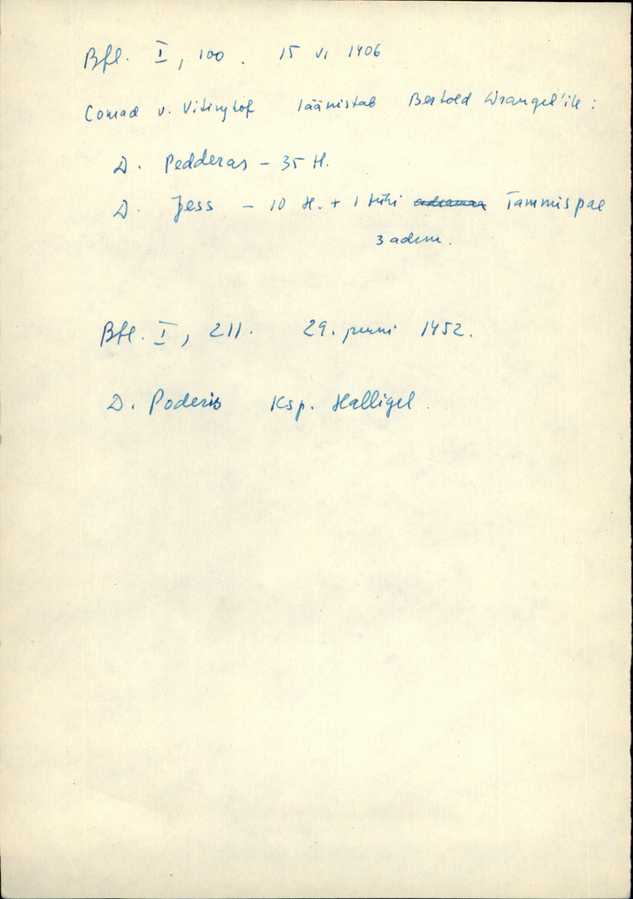 Bfl. I, 100. 15 VI 1406
Conrad v. Vitinghof läänistab Bertold Wrangel'ile:
D. Pedderas – 35 H.
D. Jess – 10 H. + 1 tühi Tammispae
3 adem.
Bfl. I, 211. 29. juuni 1452.
D. Poderis Ksp. Halligel.